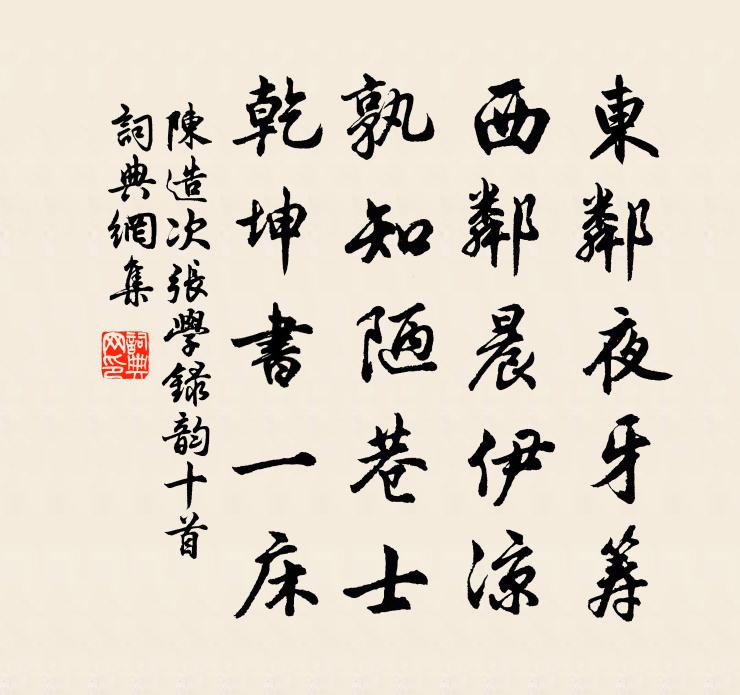 東鄰夜牙筹
西鄰晨伊涼
孰知陋巷士
乾坤書一床
陳造次張學録韵十首
詞典網集
詞典网印